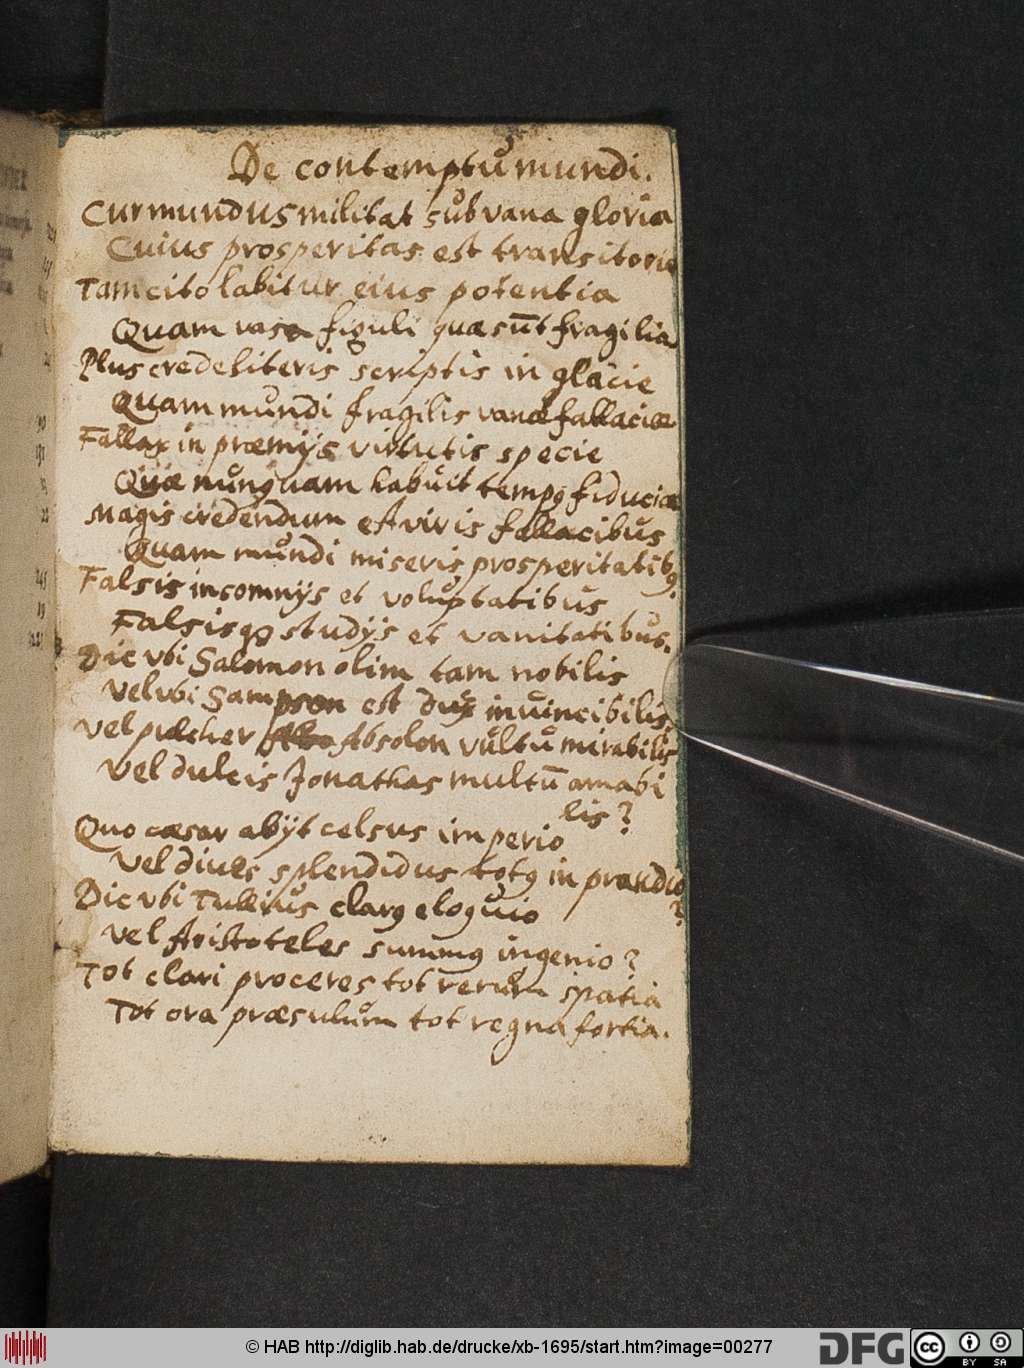 De contemptu mundi.
Cur mundus militat sub vana gloria
Cuius prosperitas est transitoria
Tam cito labitur eius potentia
Quam vasa figuli quae sūt fragilia
Plus crede literis scriptis in glacie
Quam mundi fragilis vanae fallaciae
Fallax in praemijs virtutis specie
Quae nunquam habuit tempꝰ fiduciae
Magis credendum est viris fallacibus
Quam mundi miseris prosperitatibꝰ
Falsis insomnijs et voluptatibus
Falsisqꝫ studijs et vanitatibus.
Dic vbi Salomon olim tam nobilis
Vel vbi Sampson est dux inuincibilis
Vel pulcher Absolon vultu mirabilis
Vel dulcis Jonathas multū amabi
lis?
Quo caesar abijt celsus imperio
Vel diues splendidus totꝰ in prandio
?
Dic vbi Tullius clarꝰ eloquio
Vel Aristoteles summꝰ ingenio?
Tot clari proceres tot rerum spatia
Tot ora praesulum tot regna fortia.
© HAB http://diglib.hab.de/drucke/xb-1695/start.htm?image=00277
DFG
cc
BY SA